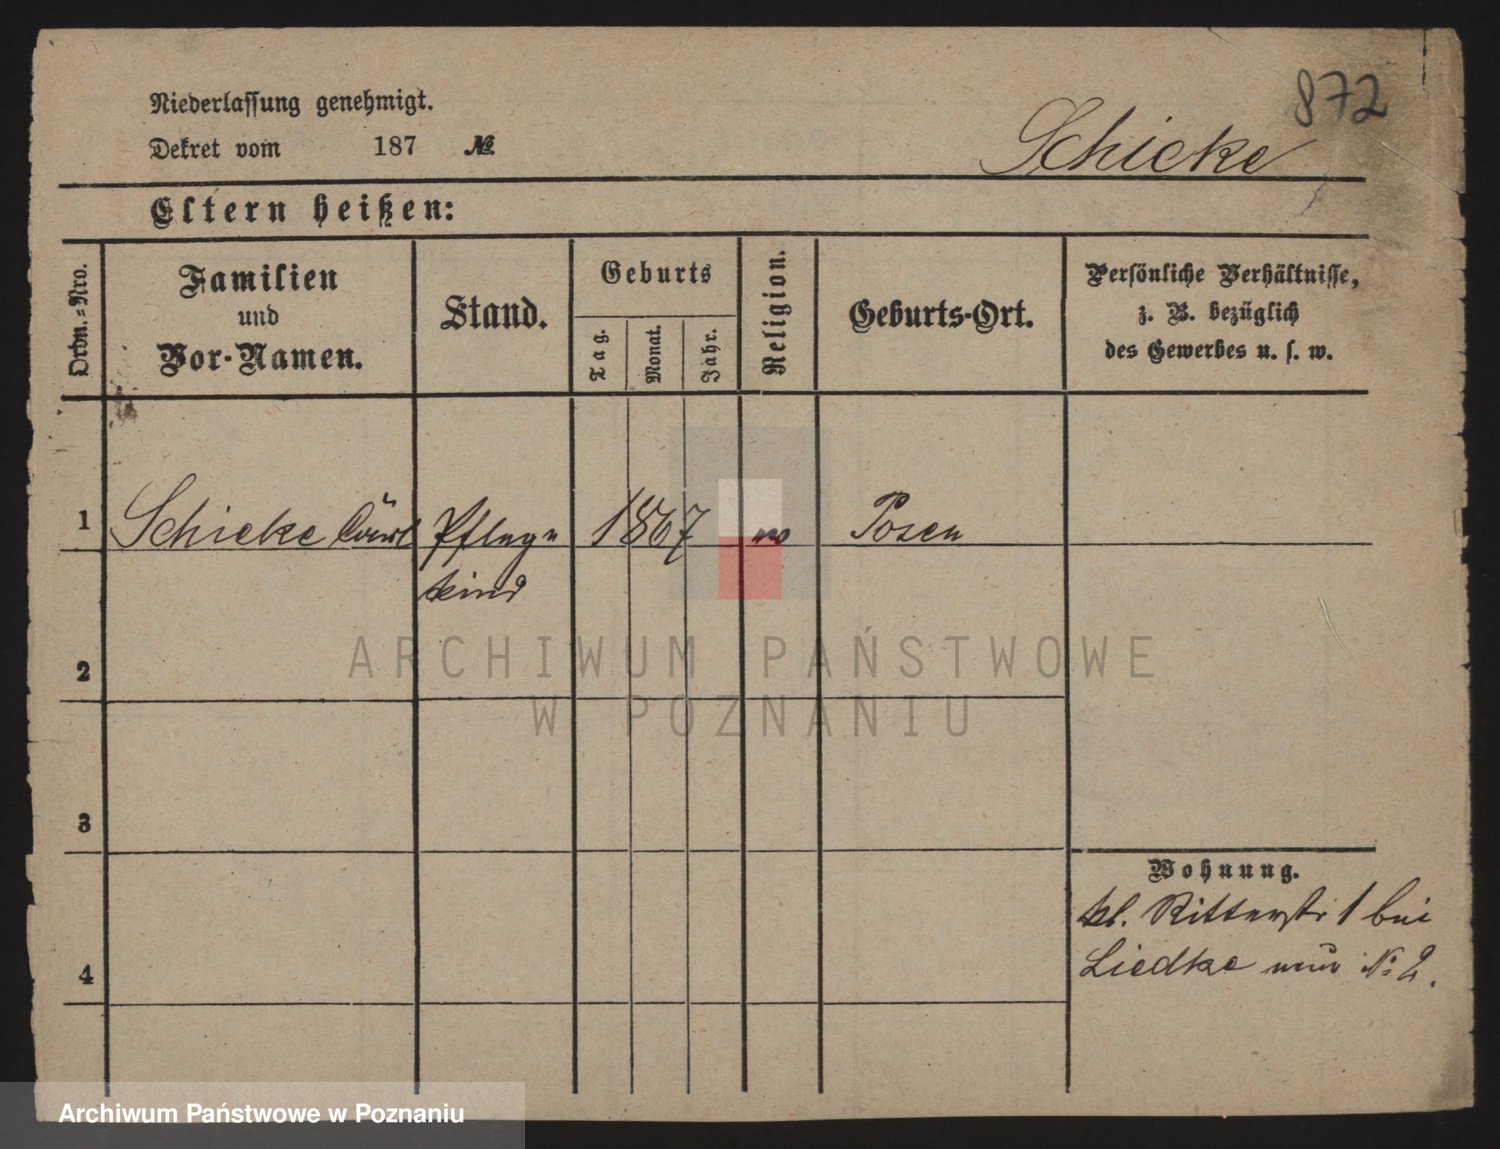 872
Niederlassung genehmigt.
Dekret vom 187 №
Schicke
Eltern heißen:
Ordn.=Nro.
Familien
und
Vor-Namen.
Stand.
Geburts
Tag.
Monat.
Jahr.
Religion.
Geburts-Ort.
Persönliche Verhältnisse,
z. B. bezüglich
des Gewerbes u. s. w.
1 Schicke Carl Pflege 1867 Posen
kind
2
3
4
Wohnung.
kl. Ritterstr 1 bei
Liedtke neue № 2.
ARCHIWUM PAŃSTWOWE
W POZNANIU
Archiwum Państwowe w Poznaniu